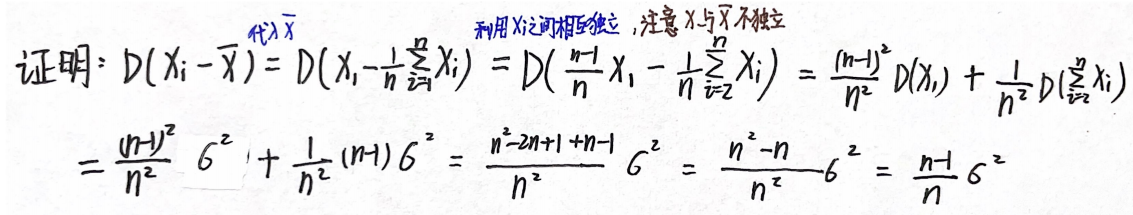 代入X̅ 利用Xi之间相互独立，注意X与X̅不独立
证明：D(Xi - X̅) = D(X₁ - 1/n ∑_{i=1}^{n} Xi) = D(n-1/n X₁ - 1/n ∑_{i=2}^{n} Xi) = (n-1)²/n² D(X₁) + 1/n² D(∑_{i=2}^{n} Xi)
= (n-1)²/n² 6² + 1/n² (n-1) 6² = n²-2n+1+n-1/n² 6² = n²-n/n² 6² = n-1/n 6²